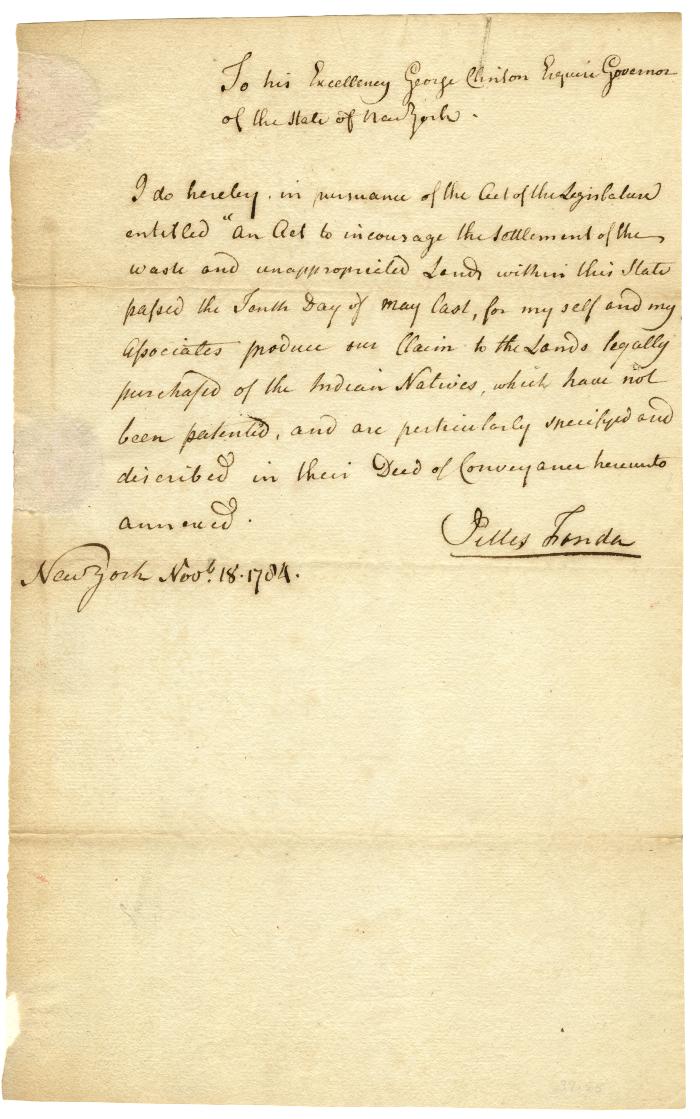 To his Excellency George Clinton Esquire Governor
of the State of New York.
I do hereby, in pursuance of the Act of the Legislature
entitled "An Act to incourage the Settlement of the
waste and unappropriated Lands within this State
passed the Tenth Day of May last, for my self and my
Associates produce our Claim to the Lands legally
purchased of the Indian Natives, which have not
been patented, and are perticularly specifyed and
discribed in their Deed of Conveyance hereunto
annexed.
Jelles Fonda
New York Novbr. 18. 1784.